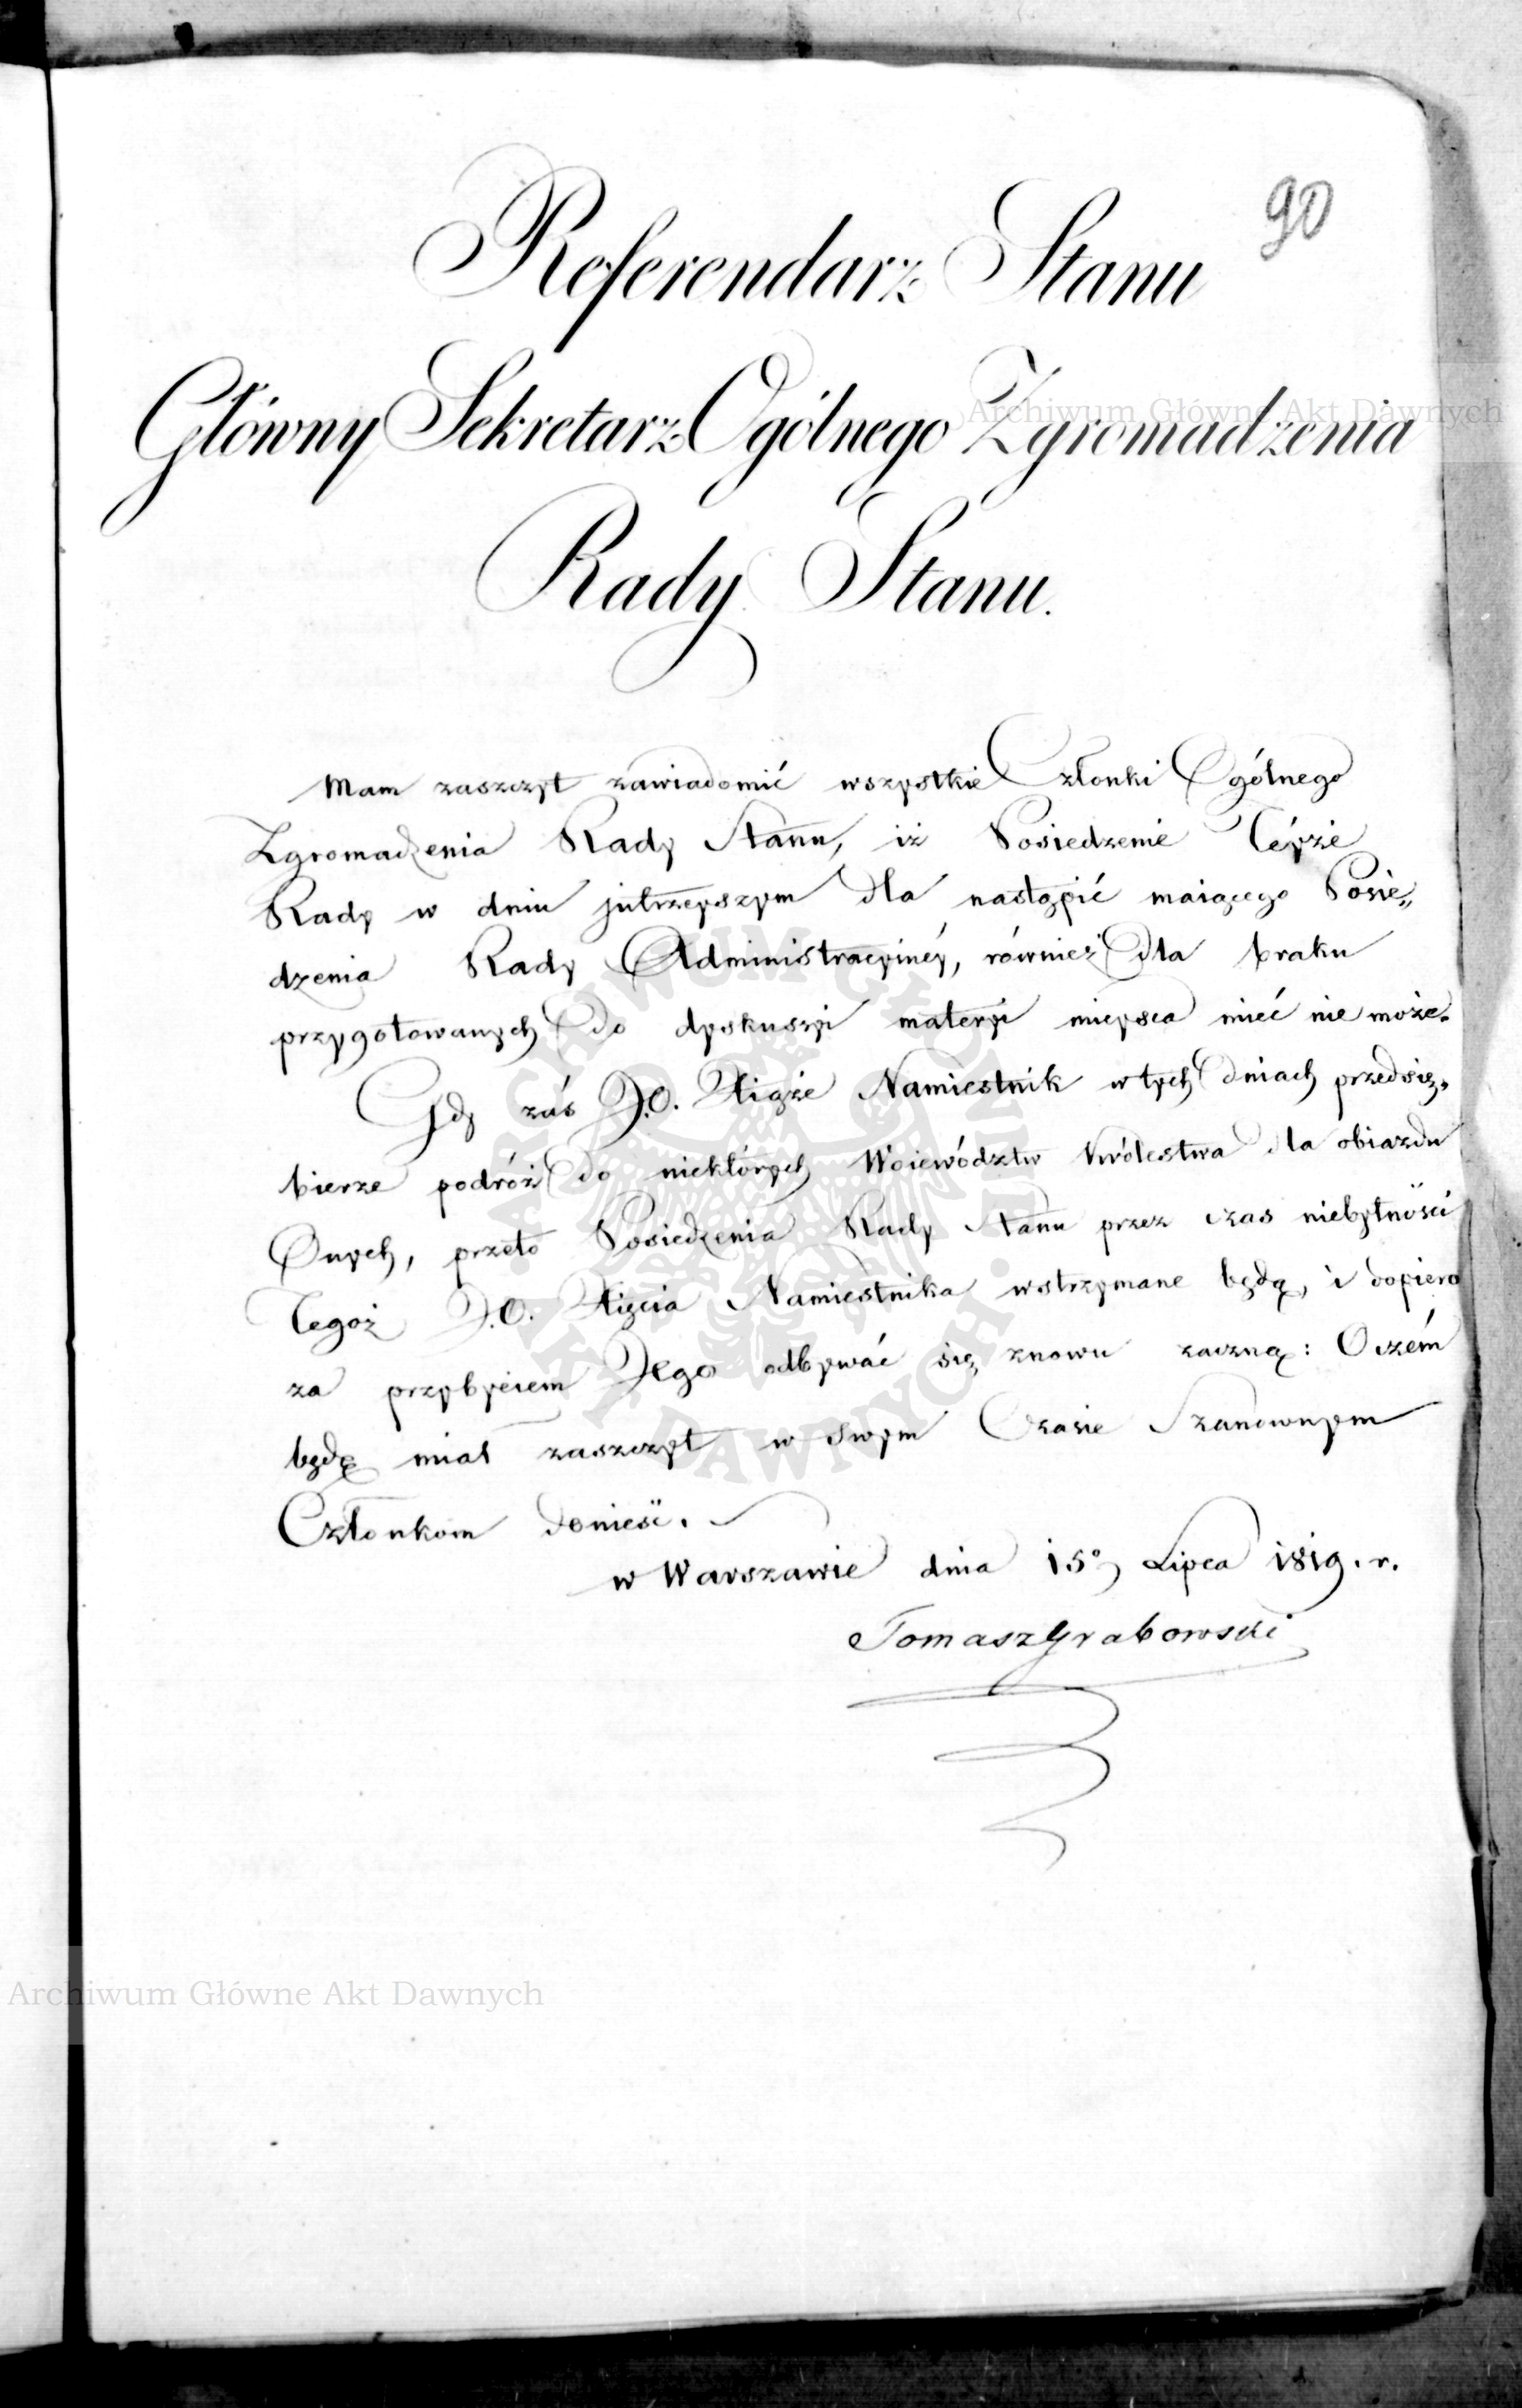 90
Referendarz Stanu
Główny Sekretarz Ogólnego Zgromadzenia
Rady Stanu.
Mam zaszczyt zawiadomić wszystkie Członki Ogólnego
Zgromadzenia Rady Stanu, iż Posiedzenie Teyże
Rady w dniu jutrzeyszym dla nastąpić maiącego Posie„
dzenia Rady Administracyinéy, również dla braku
przygotowanych do dyskuszyi materyi mieysca mieć nie może.
Gdy zaś J.O. Xiąże Namiestnik w tych dniach przedsię„
bierze podróż do niektórych Woiewództw Królestwa dla obiazdu
Onych, przeto Posiedzenia Rady Stanu przez czas niebytności
Tegoż J.O. Xięcia Namiestnika wstrzymane będą, i dopiero
za przybyciem Jego odbywać się znowu zaczną: O czém
będę miał zaszczyt w swym Czasie Szanownym
Członkom donieść.
w Warszawie dnia 15º Lipca 1819. r.
Tomasz Grabowski
Archiwum Główne Akt Dawnych
Archiwum Główne Akt Dawnych
ARCHIWUM GŁÓWNE AKT DAWNYCH